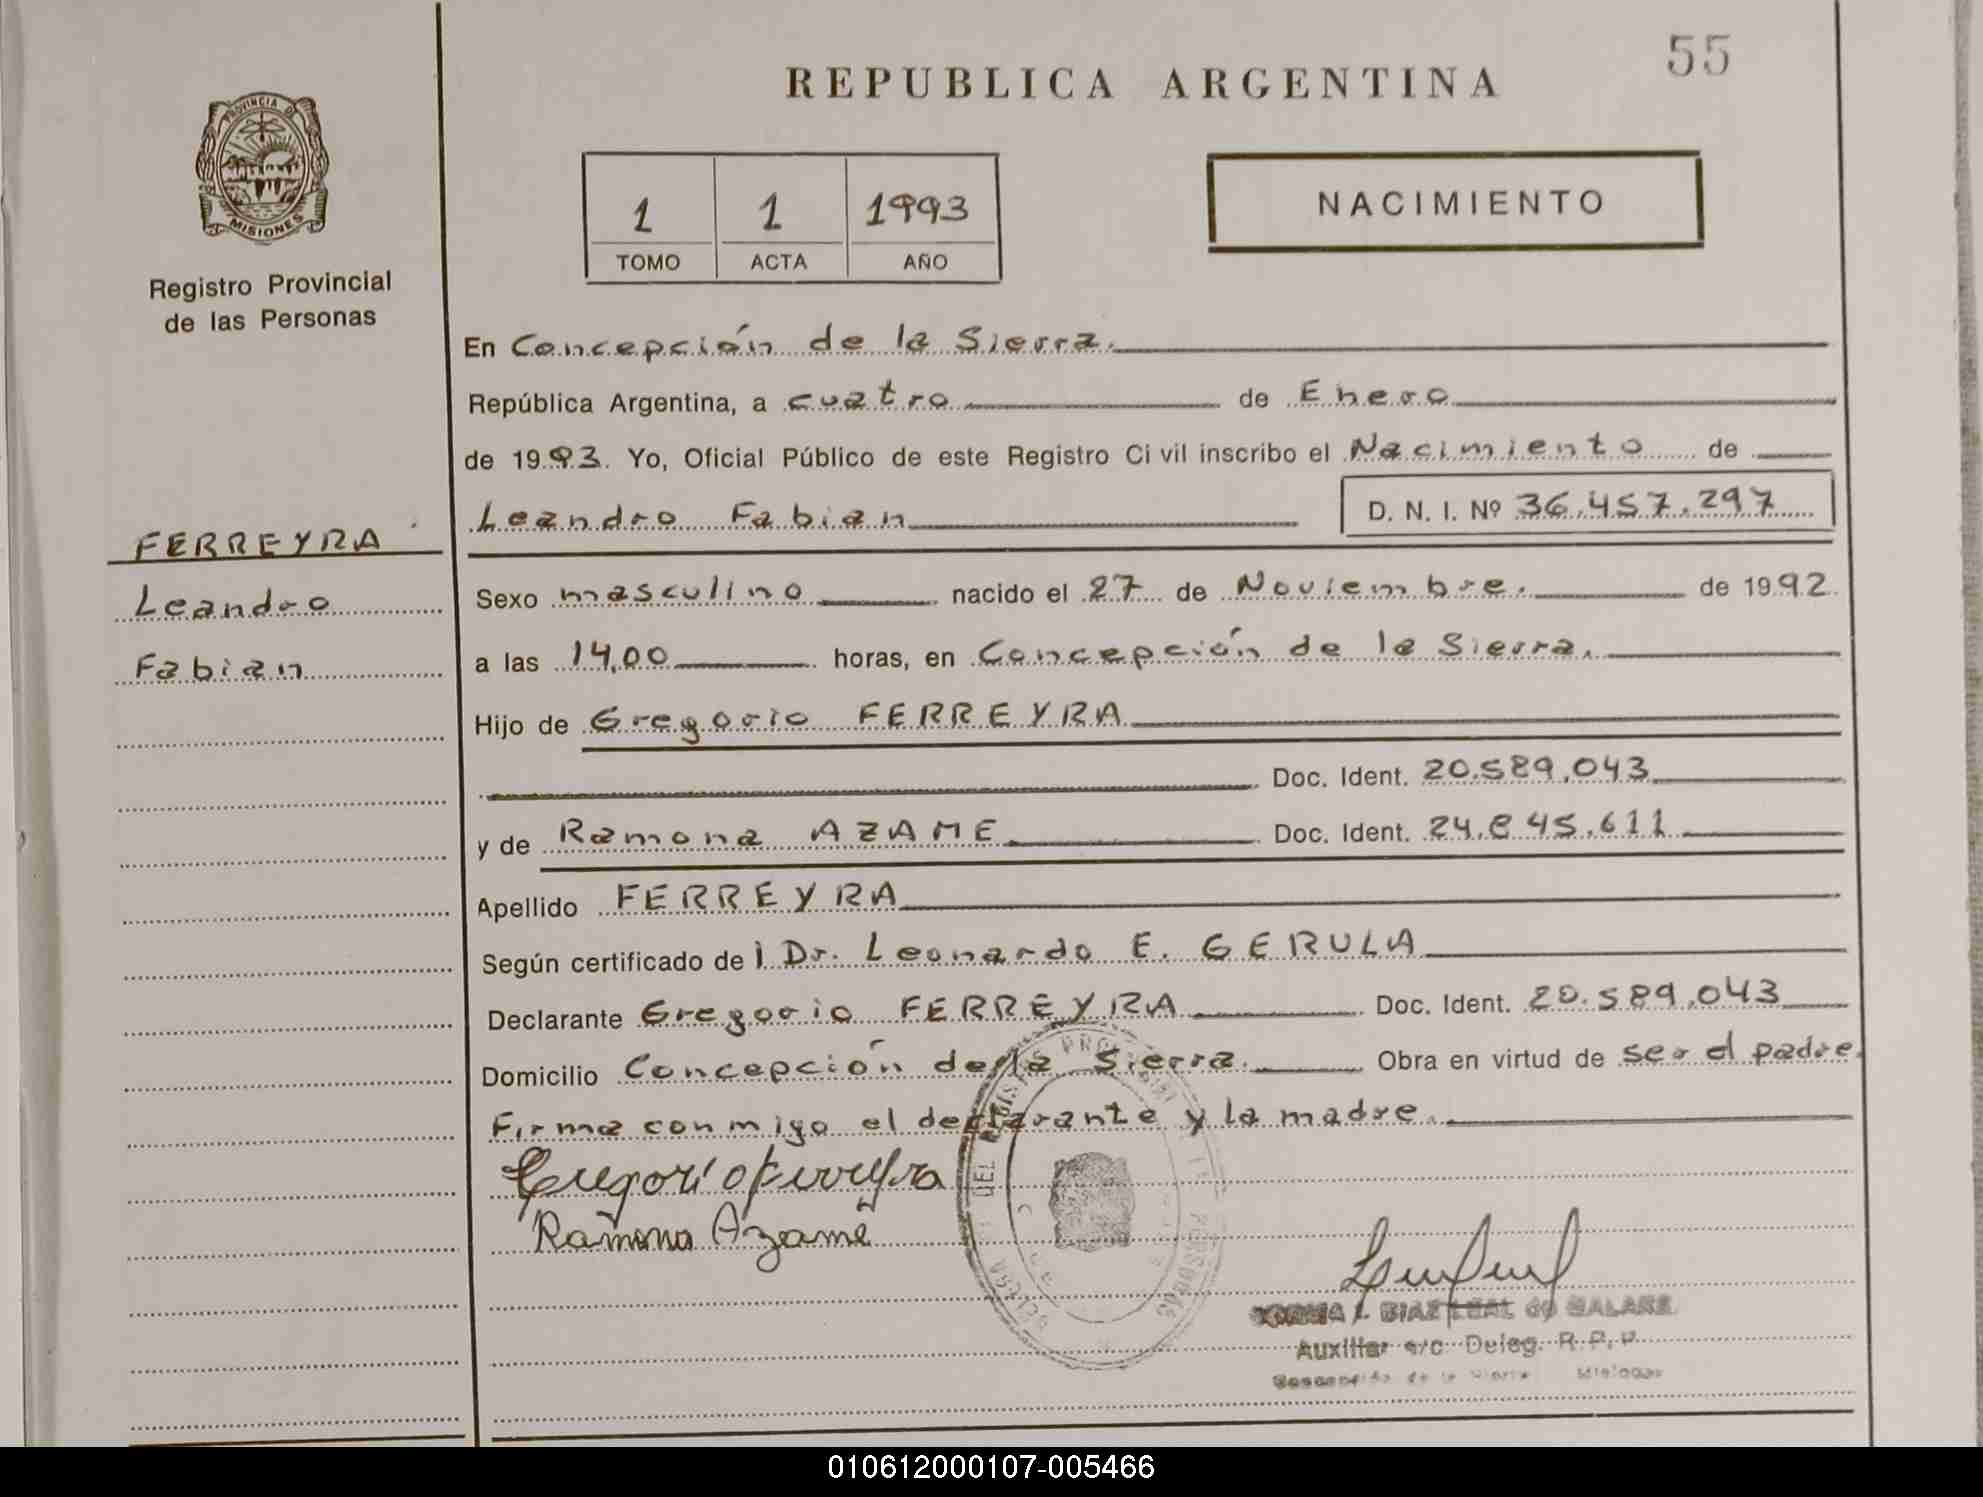 55
REPUBLICA ARGENTINA
PROVINCIA DE
MISIONES
Registro Provincial
de las Personas
1 1 1993
TOMO ACTA AÑO
NACIMIENTO
En Concepción de la Sierra.
República Argentina, a cuatro de Enero
de 1993. Yo, Oficial Público de este Registro Civil inscribo el Nacimiento de
Leandro Fabian D. N. I. Nº 36.457.297
FERREYRA
Leandro
Fabian
Sexo masculino nacido el 27 de Noviembre. de 1992
a las 14,00 horas, en Concepción de la Sierra.
Hijo de Gregorio FERREYRA
Doc. Ident. 20.589.043
y de Ramona AZAME Doc. Ident. 24.845.611
Apellido FERREYRA
Según certificado del Dr. Leonardo E. GERULA
Declarante Gregorio FERREYRA Doc. Ident. 20.589.043
Domicilio Concepción de la Sierra. Obra en virtud de ser el padre.
Firma conmigo el declarante y la madre.
Gregorio Ferreyra
Ramona Azame
DIAZ LEAL de
Auxiliar a/c Deleg. R. P. P.
Misiones
010612000107-005466